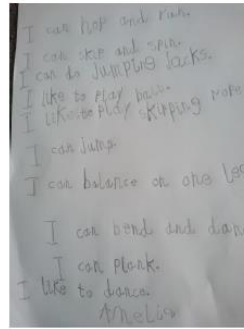 I can hop and run.
I can skip and spin.
I can do Jumping Jacks.
I like to Play
I like to Play skipping rope
I can Jump
I can balance on one leg
I can bend and dan
I can Plank.
I like to dance.
Amelia